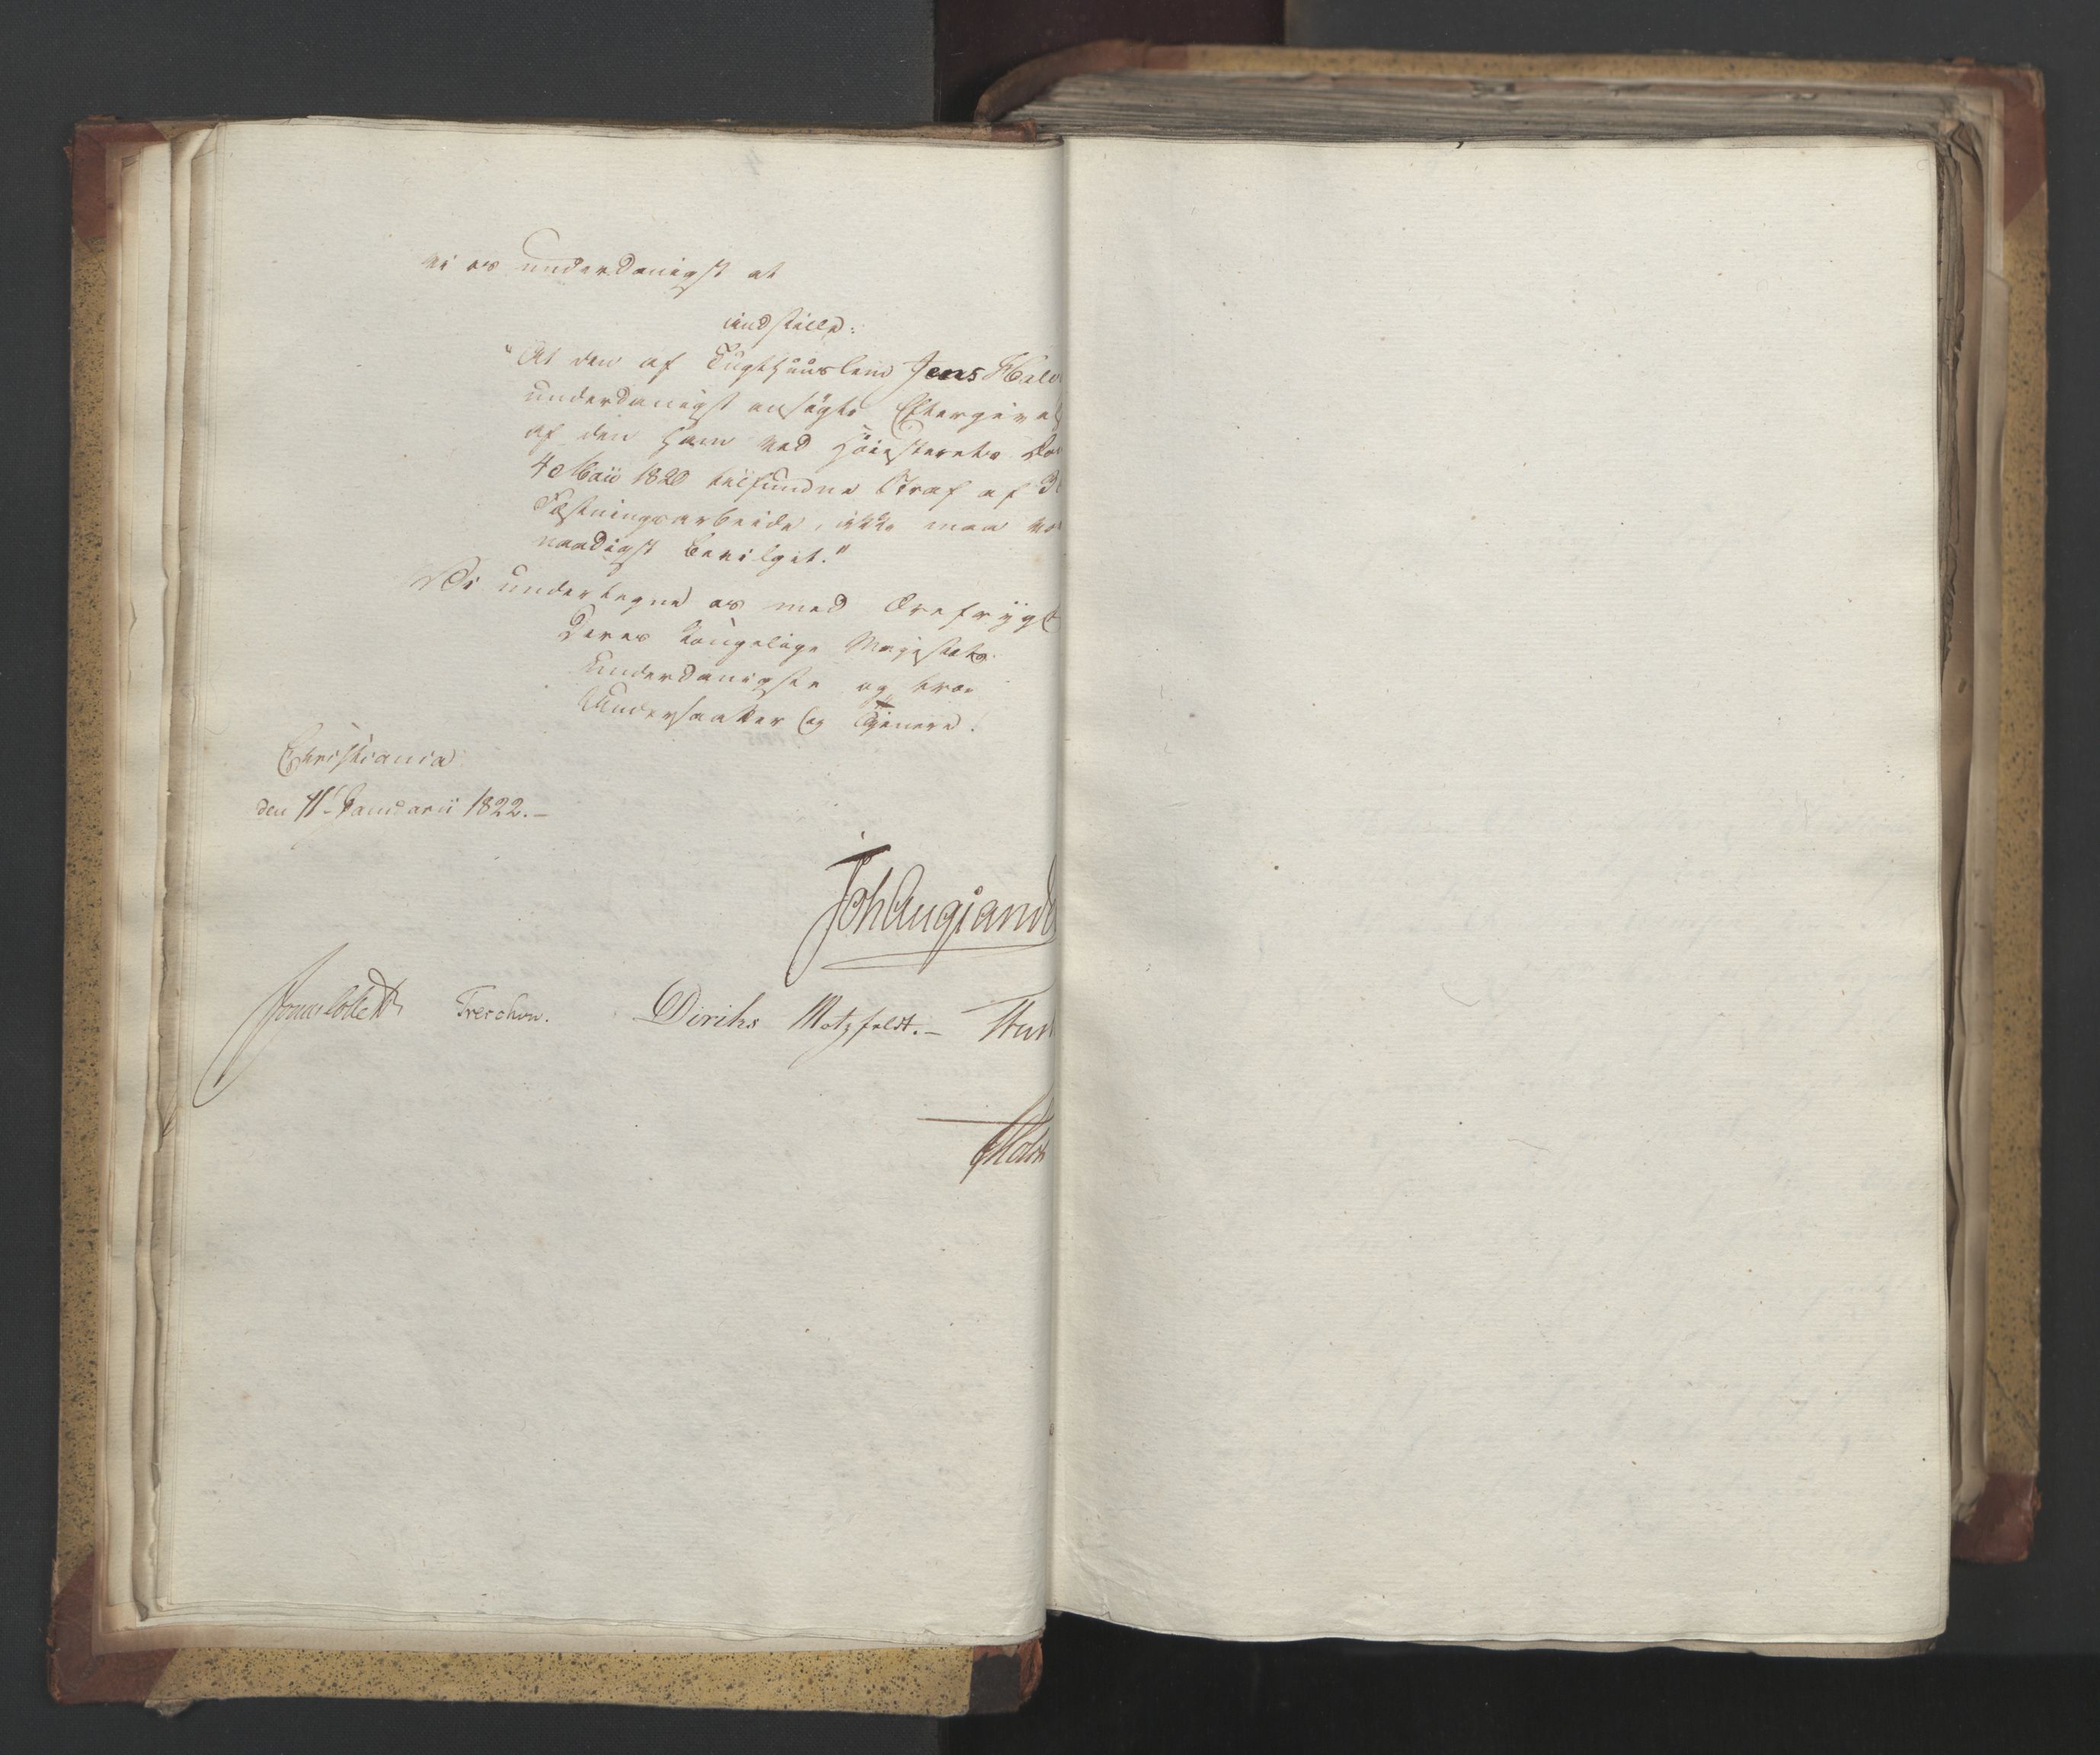 vi os underdanigst at
indstille:
"At den af Tugthuuslem Jens Hal
underdanigst ansøgte Eftergivels
af den ham ved Høiesterets Do
4de Maii 1820 tilfundne Straf af 3
Fæstningsarbeide, ikke maa vo
naadigst bevilget."
Vi undertegne os med Ærefrygt
Deres Kongelige Majestets
underdanigste og troe
Undersaatter og Tjenere.
Christiania
den 11 Januarii 1822.-
Joh Aug Sand
Jonas Collett Treschow. Diriks Motzfeldt.-
Holst